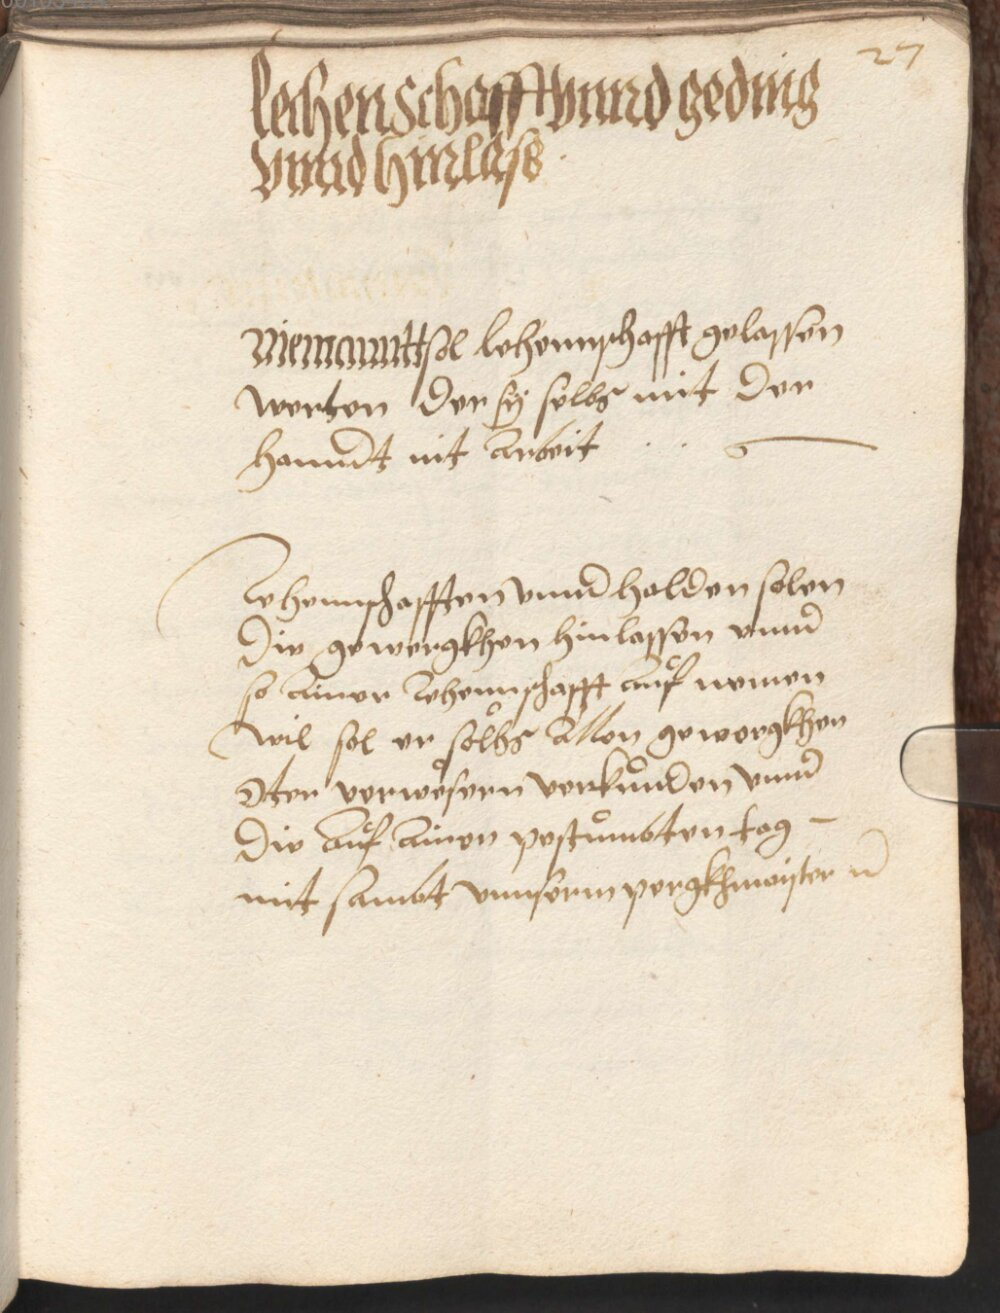 27
Lechenschafft vnnd geding
vnnd hinlass
Niemanntt sol lehennschafft gelassen
werden der sy selbs mit der
hanndt nit Arbeit
Lehennschafften vnnd halden solen
die gewergkhen hinlassen vnnd
so ainer Lehennschafft auf nemen
wil sol er selbs Allen gewergkhen
oder verwesern verkunden vnnd
die auf ainen pestumbten tag
mit sambt vnnserm pergkhmaister